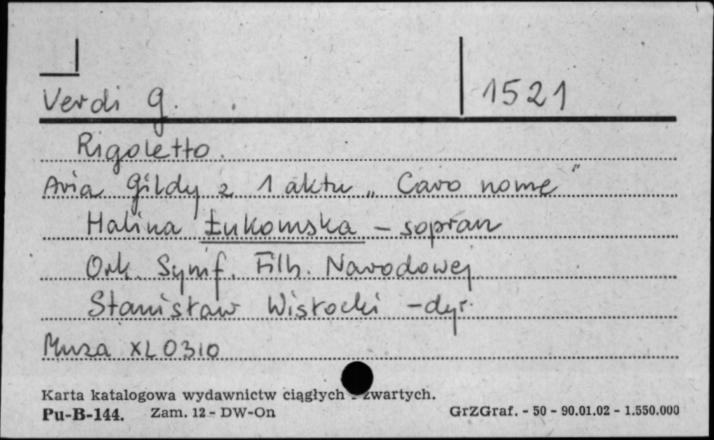 Verdi G. 1521
Rigoletto.
Aria Gildy z 1 aktu „Caro nome"
Halina Łukomska – sopran
Ork. Symf. Filh. Narodowej
Stanisław Wisłocki – dyr.
Muza XL 0310
Karta katalogowa wydawnictw ciągłych - zwartych.
Pu-B-144. Zam. 12 - DW-On GrZGraf. - 50 - 90.01.02 - 1.550.000